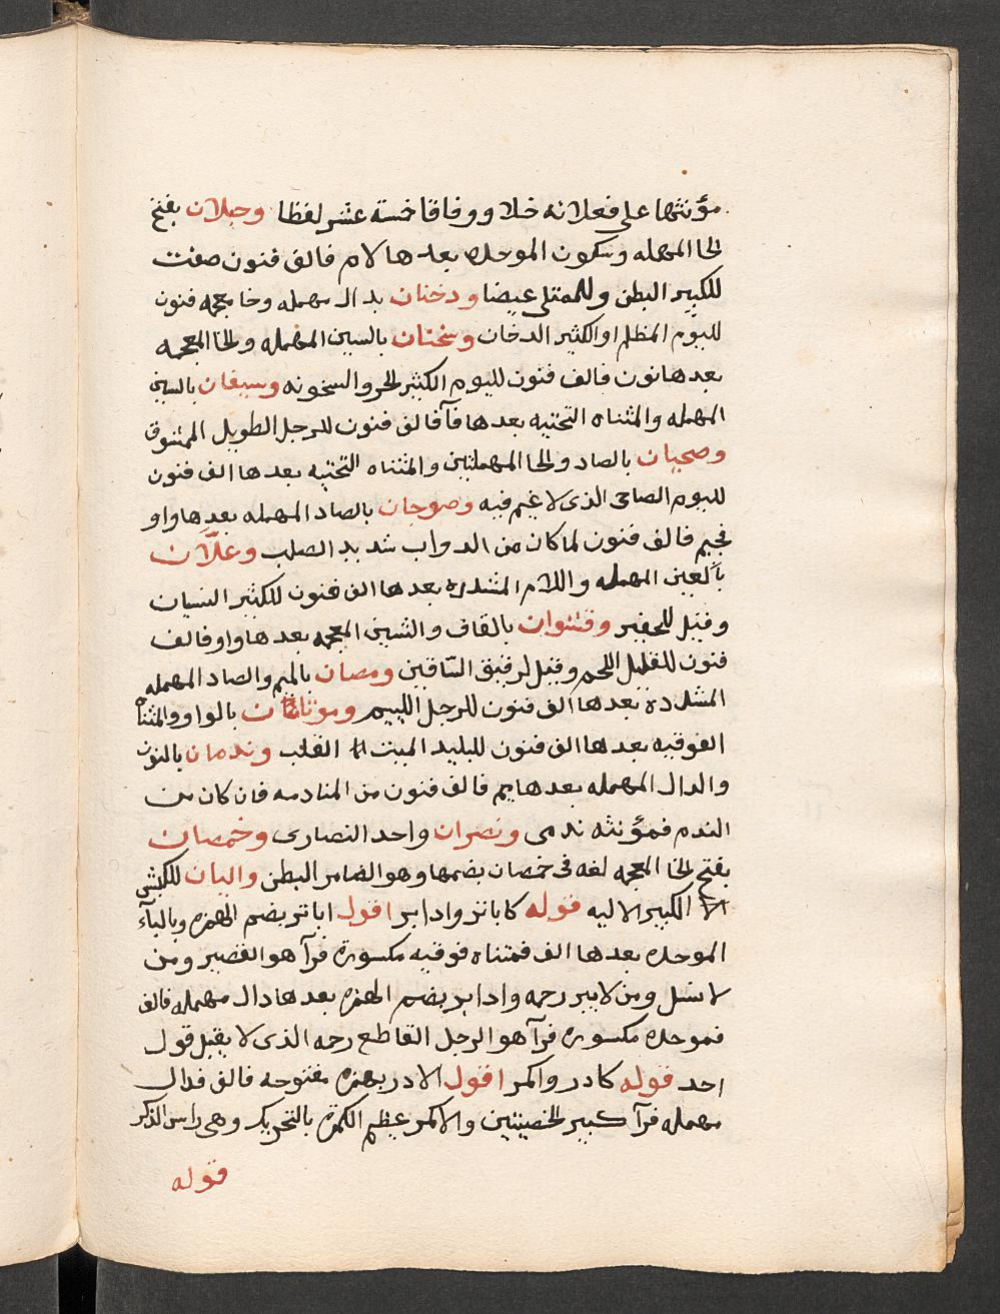 مؤنثها على فعلانه خلا ووفاقا خمسة عشر لفظا وحبلان بفتح
الحا المهمله وسكون الموحده بعدها لام فالف فنون صفت
للكبير البطن وللممتلى غيضا ودخنان بدال مهمله وخا معجمه فنون
لليوم المظلم او الكثير الدخان وسخنان بالسين المهمله والخا المعجمه
بعدها نون فالف فنون لليوم الكثير الحر والسخونه وسيفان بالسين
المهمله والمثناه التحتيه بعدها فآ فالف فنون للرجل الطويل الممشوق
وصحيان بالصاد والحا المهملتين والمثناه التحتيه بعدها الف فنون
لليوم الصاحى الذى لا غيم فيه وصوجان بالصاد المهمله بعدها واو
فجيم فالف فنون لما كان من الدواب شديد الصلب وعلّان
بالعين المهمله واللام المشدده بعدها الف فنون للكثير النسيان
وقيل للحقير وقشوان بالقاف والشين المعجمه بعدها واو فالف
فنون للقليل اللحم وقيل لرقيق الساقين ومصان بالميم والصاد المهمله
المشدده بعدها الف فنون للرجل اللييم وموتان بالواو والمثناه
الفوقيه بعدها الف فنون للبليد الميت القلب وندمان بالنون
والدال المهمله بعدها ميم فالف فنون من المنادمه فان كان من
الندم فمؤنثه ندمى ونصران واحد النصارى وخمصان
بفتح الخا المعجمه لغه فى خمصان بضمها وهو الضامر البطن واليان للكبش
الكبير الاليه قوله كاباتر وادابر اقول اباتر بضم الهمزه وبالبآء
الموحده بعدها الف فمثناه فوقيه مكسورة فرآ هو القصير ومن
لا نسل ومن لا يبر رحمه وادابر بضم الهمزه بعدها دال مهمله فالف
فموحده مكسوره فرآ هو الرجل القاطع رحمه الذى لا يقبل قول
احد قوله كادر واكمر اقول الادر بهمزه مفتوحه فالف فدال
مهمله فرآ كبير الخصيتين والاكمر عظيم الكمرة بالتحريك وهى راس الذكر
قوله